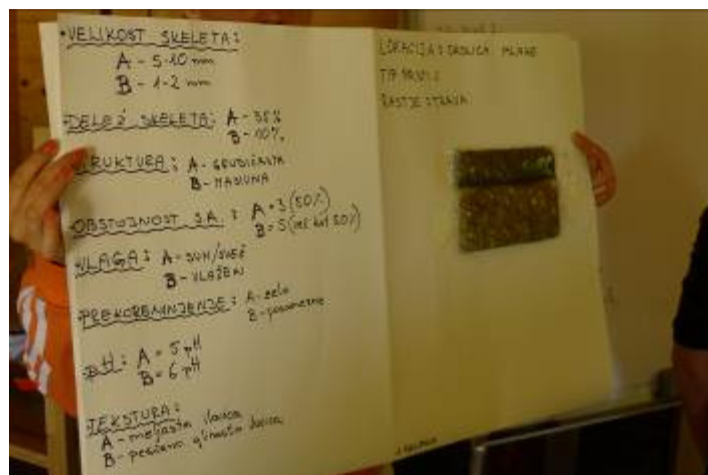 • VELIKOST SKELETA:
A - 5-10 mm
B - 1-2 mm
• DELEŽ SKELETA: A - 35%
B - 10%
STRUKTURA: A - GRUDIČASTA
B - MASIVNA
• OBSTOJNOST S.A.: A = 3 (50%)
B = 5 (več kot 50%)
• VLAGA: A - SUH/SVEŽ
B - VLAŽEN
• PREKORENINJENJE: A - zelo
B - posamezne
• pH: A = 5 pH
B = 6 pH
• TEKSTURA:
A - meljasta ilovica
B - peščeno glinasta ilovica
LOKACIJA: OKOLICA MLAKE
TIP
RASTJE: TRAVA